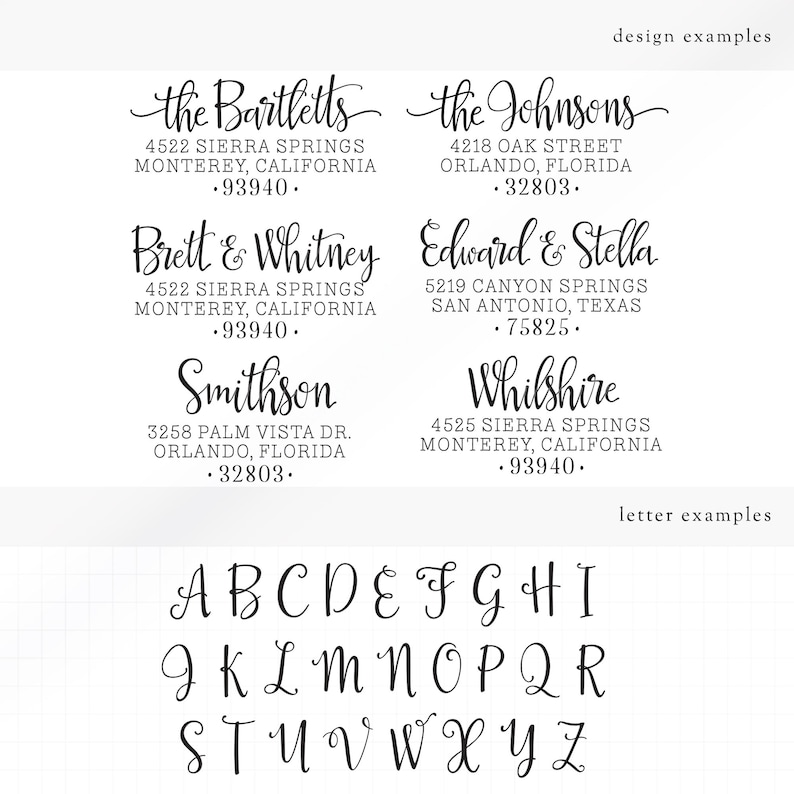 design examples
the Bartletts
4522 SIERRA SPRINGS
MONTEREY, CALIFORNIA
·93940·
the Johnsons
4218 OAK STREET
ORLANDO, FLORIDA
·32803·
Brett & Whitney
4522 SIERRA SPRINGS
MONTEREY, CALIFORNIA
·93940·
Edward & Stella
5219 CANYON SPRINGS
SAN ANTONIO, TEXAS
·75825·
Smithson
3258 PALM VISTA DR.
ORLANDO, FLORIDA
·32803·
Whilshire
4525 SIERRA SPRINGS
MONTEREY, CALIFORNIA
·93940·
letter examples
A B C D E F G H I
J K L M N O P Q R
S T U V W X Y Z